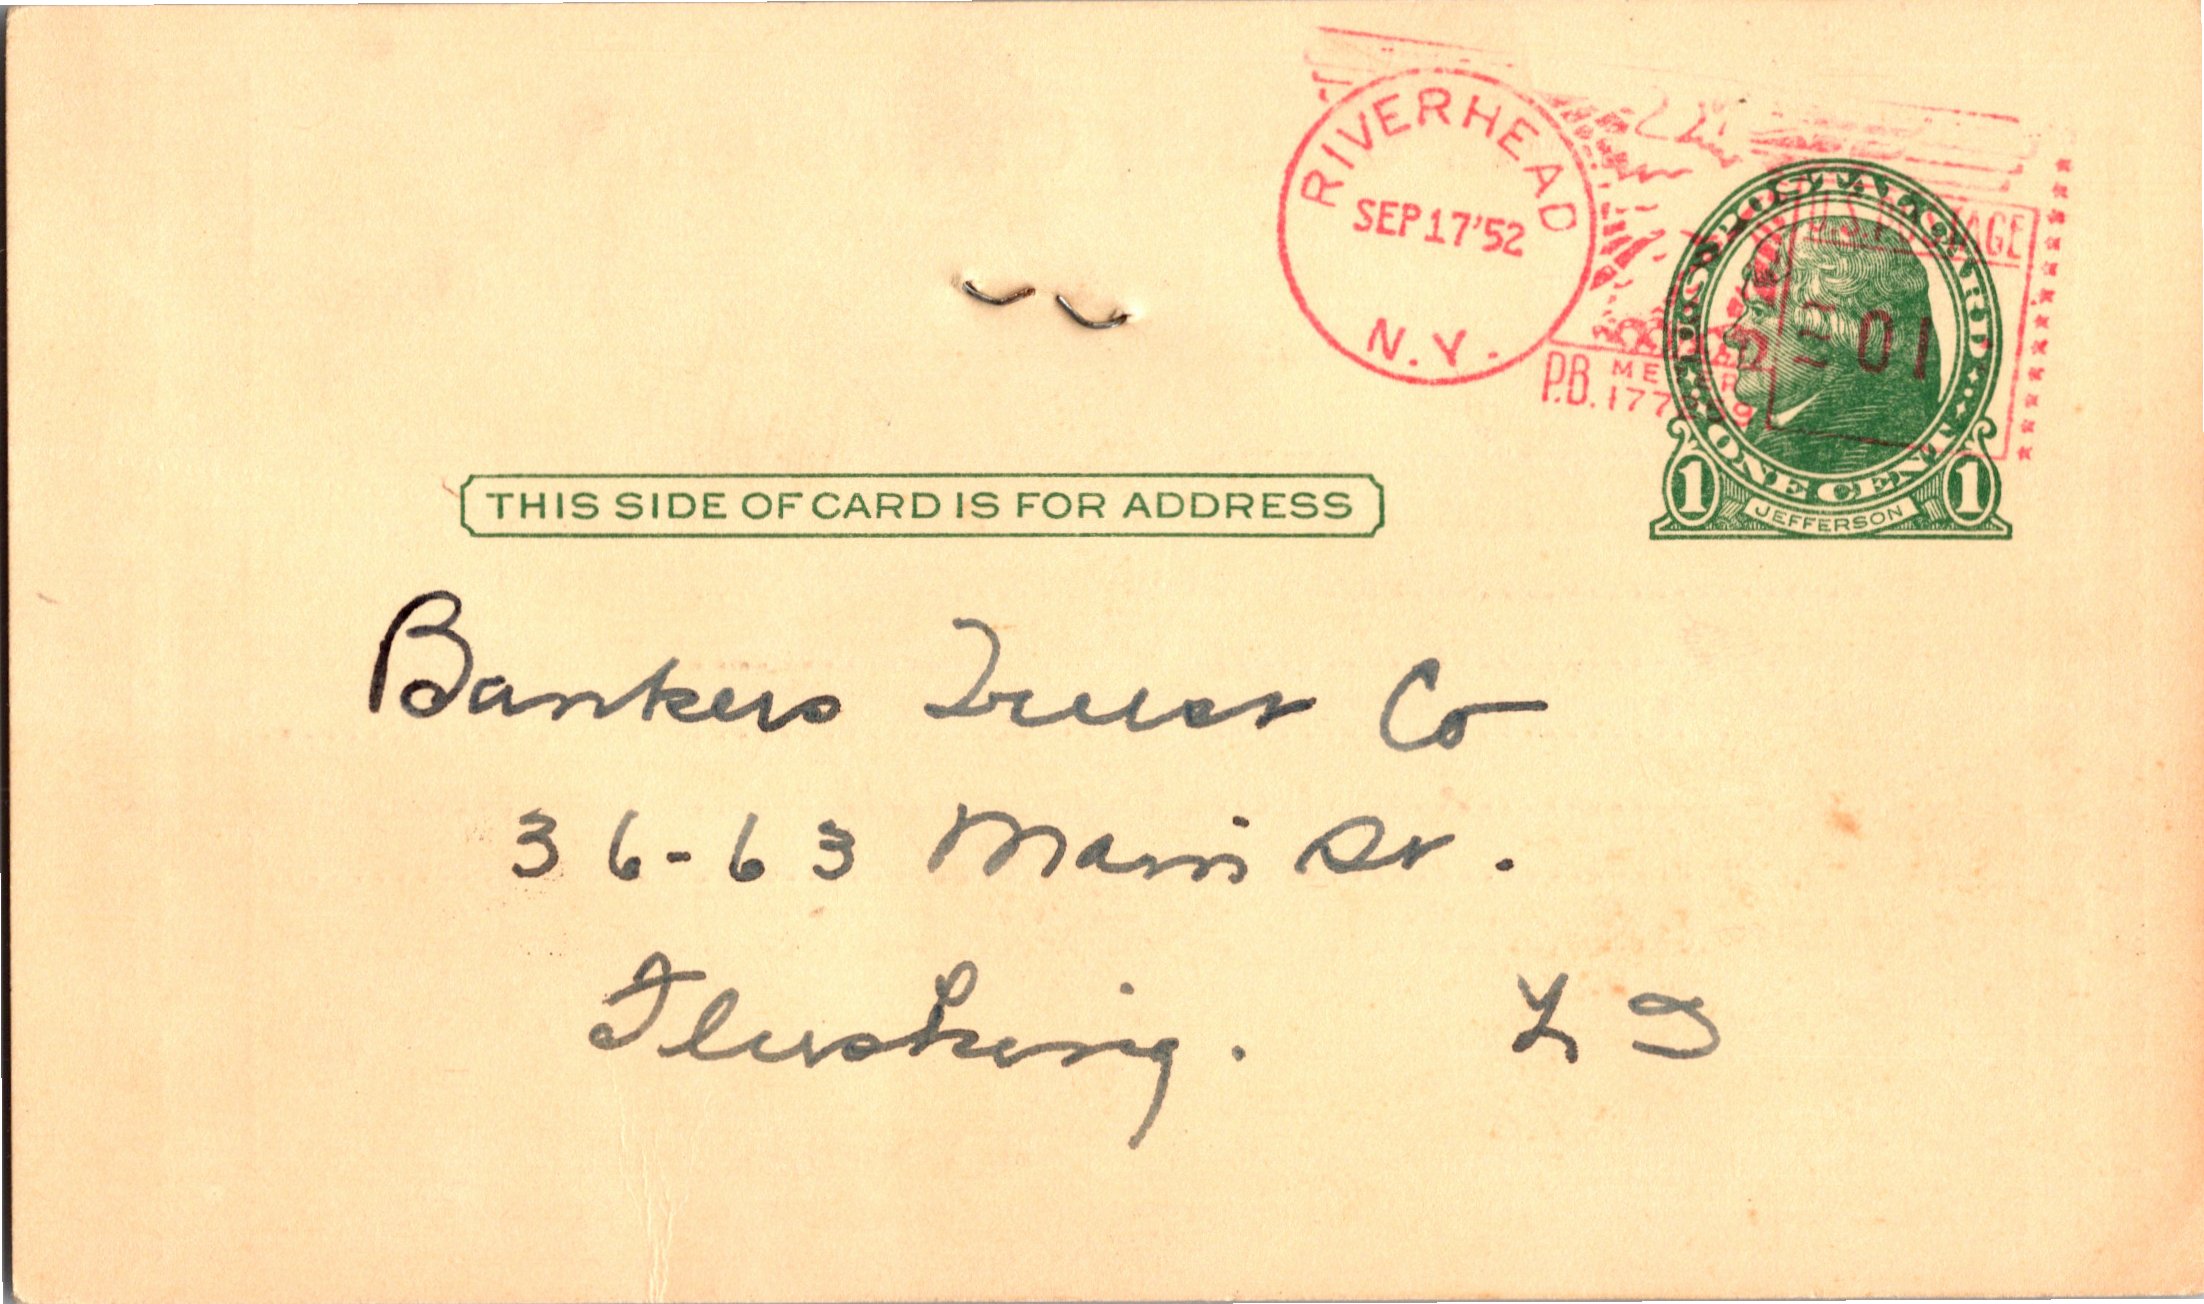 RIVERHEAD
SEP 17 '52
N.Y.
P.B. METER
U.S. POSTAGE
01
U.S. POSTAL CARD
ONE CENT
1 JEFFERSON 1
THIS SIDE OF CARD IS FOR ADDRESS
Bankers Trust Co
36-63 Main St.
Flushing. L I